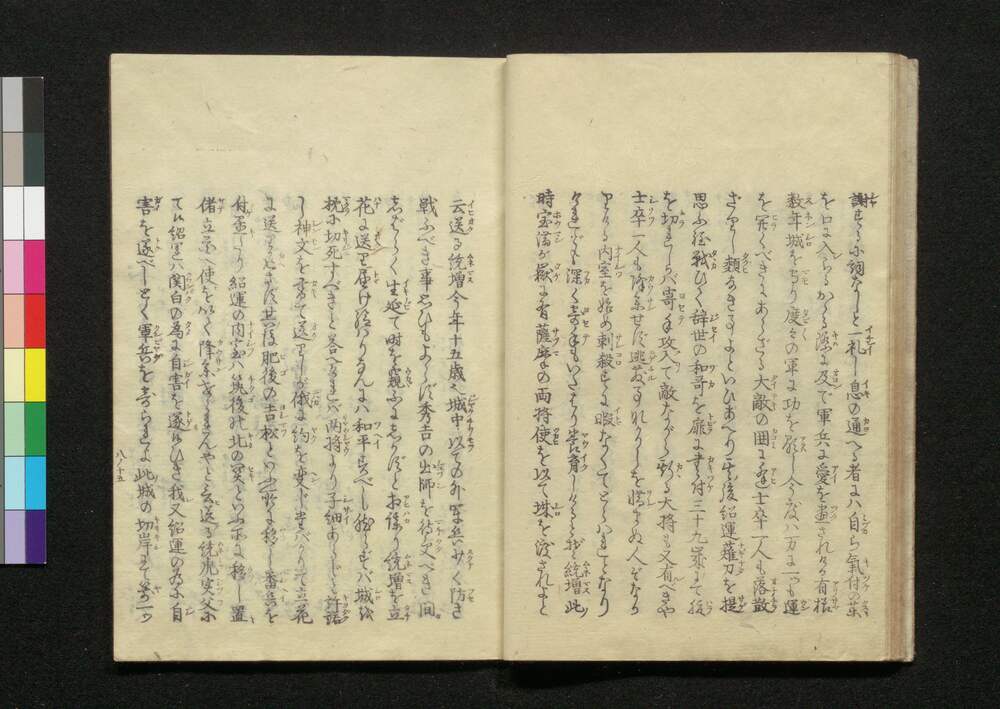 謝するに詞なしと一礼し息の通へる者には自ら氣付の薬
を口に入らるかゝる際に及で軍兵に愛を盡されける有様
数年城を守り度々の軍に功を顕し今なんは万に一つも運
を開くべきにあらざる大敵の囲に逢士卒一人も落散
ざりし類なき事よといひあへり其後紹運薙刀を提
思ふ程戦ひて辞世の和哥を扉に書付三十九歳にて腹
を切ければ寄手攻入て敵ながら斯る大将も又有べきや
士卒一人も降参せず逃ず有けりしを惜まぬ人ぞなかり
ける内室を始め刺殺するに暇なくてとらはれとなり
けれども深く寄手もいたはり警育しけるとぞ統増此
時宝満が嶽に有薩摩の両将使を以て城を渡されよと
云送る統増今年十五歳也城中以ての外軍兵少く防ぎ
戦ふべき事思ひもよらず秀吉の出師を待べき間
しばらく生延て時を窺ふにしかずとおほり統増を立
花に送り届け給はりなんには和平すべし然らずば城を
枕に切死すべきと答へければ両将より子細あらじと許諾
し神文を書て送りしが俄に約を変じ母ばかりて立花
に送りけるとぞ其後肥後の吉松といふ所に移し番兵を
付置しより紹運の内室は筑後の北の関といふ所に移し置
偖立花へ使を以て降参せられんやと云送る統虎実父
て紹運は関白の為に自害を遂給ひき我又紹運の為に自
害を遂べしとく軍兵を寄られよ此城の切岸にて第一の
八ノ十五